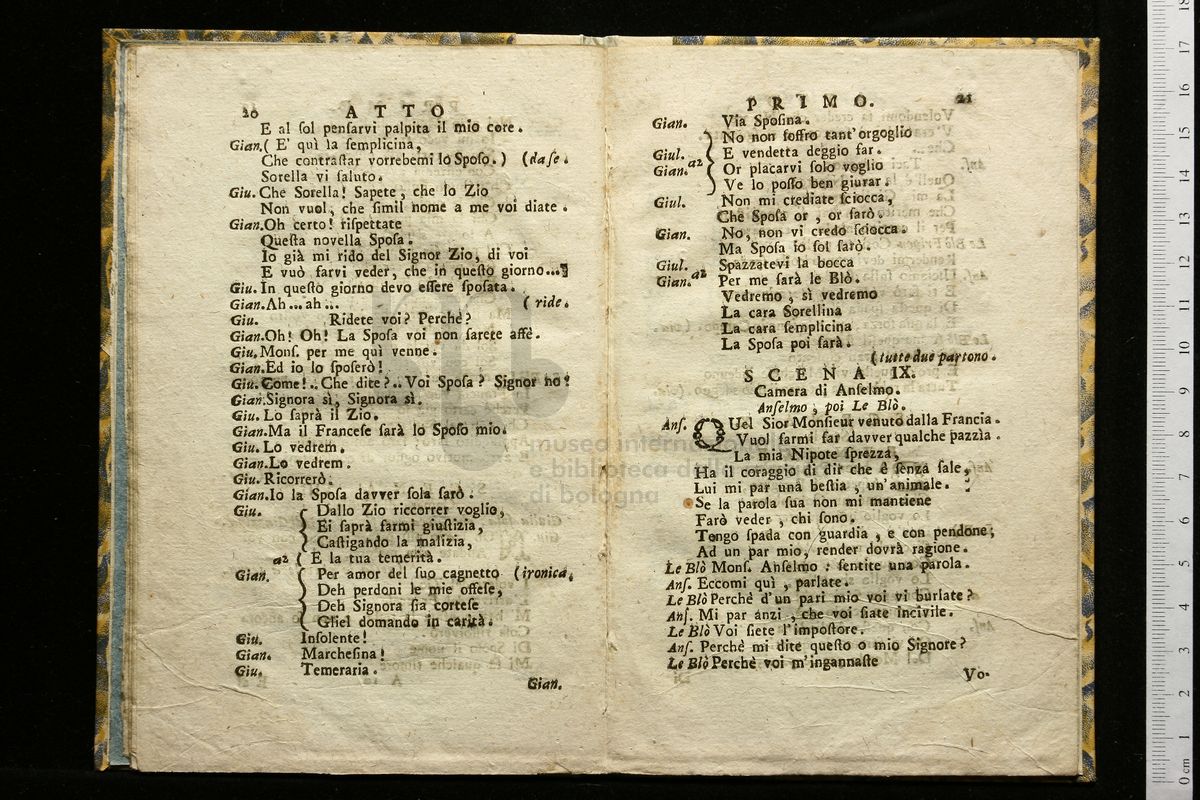 20 ATTO
E al ſol penſarvi palpita il mio core.
Gian. ( E' quì la ſemplicina,
Che contraſtar vorrebemi lo Spoſo. ) (da ſe.
Sorella vi ſaluto.
Giu. Che Sorella! Sapete, che lo Zio
Non vuol, che ſimil nome a me voi diate.
Gian. Oh certo! riſpettate
Queſta novella Spoſa.
Io già mi rido del Signor Zio, di voi
E vuò farvi veder, che in queſto giorno...
Giu. In queſto giorno devo eſſere ſpoſata.
Gian. Ah... ah... ( ride.
Giu. Ridete voi? Perchè?
Gian. Oh! Oh! La Spoſa voi non ſarete affè.
Giu. Monſ. per me quì venne.
Gian. Ed io lo ſpoſerò!
Giu. Come!.. Che dite?.. Voi Spoſa? Signor no!
Gian. Signora sì, Signora sì.
Giu. Lo ſaprà il Zio.
Gian. Ma il Franceſe ſarà lo Spoſo mio.
Giu. Lo vedrem.
Gian. Lo vedrem.
Giu. Ricorrerò.
Gian. Io la Spoſa davver ſola ſarò.
Giu. Dallo Zio riccorrer voglio,
Ei ſaprà farmi giuſtizia,
Caſtigando la malizia,
a2 E la tua temerità.
Gian. Per amor del ſuo cagnetto (ironica.
Deh perdoni le mie offeſe,
Deh Signora ſia corteſe
Gliel domando in carità.
Giu. Inſolente!
Gian. Marcheſina!
Giu. Temeraria.
Gian.
PRIMO. 21
Gian. Via Spoſina.
No non ſoffro tant'orgoglio
Giul. E vendetta deggio far.
Gian. a2 Or placarvi ſolo voglio
Ve lo poſſo ben giurar.
Giul. Non mi crediate ſciocca,
Che Spoſa or, or ſarò.
Gian. No, non vi credo ſciocca.
Ma Spoſa io ſol ſarò.
Giul. Spazzatevi la bocca
Gian. a2 Per me ſarà le Blò.
Vedremo, sì vedremo
La cara Sorellina
La cara ſemplicina
La Spoſa poi ſarà.
(tutte due partono.
SCENA IX.
Camera di Anſelmo.
Anſelmo, poi Le Blò.
Anſ. QUel Sior Monſieur venuto dalla Francia.
Vuol farmi far davver qualche pazzìa.
La mia Nipote ſprezza,
Ha il coraggio di dir che è ſenza ſale,
Lui mi par una beſtia, un'animale.
Se la parola ſua non mi mantiene
Farò veder, chi ſono.
Tengo ſpada con guardia, e con pendone;
Ad un par mio, render dovrà ragione.
Le Blò Monſ. Anſelmo: ſentite una parola.
Anſ. Eccomi quì, parlate.
Le Blò Perchè d'un pari mio voi vi burlate?
Anſ. Mi par anzi, che voi ſiate incivile.
Le Blò Voi ſiete l'impoſtore.
Anſ. Perchè mi dite queſto o mio Signore?
Le Blò Perchè voi m'ingannaſte
Vo-
museo internazionale
e biblioteca della
di bologna